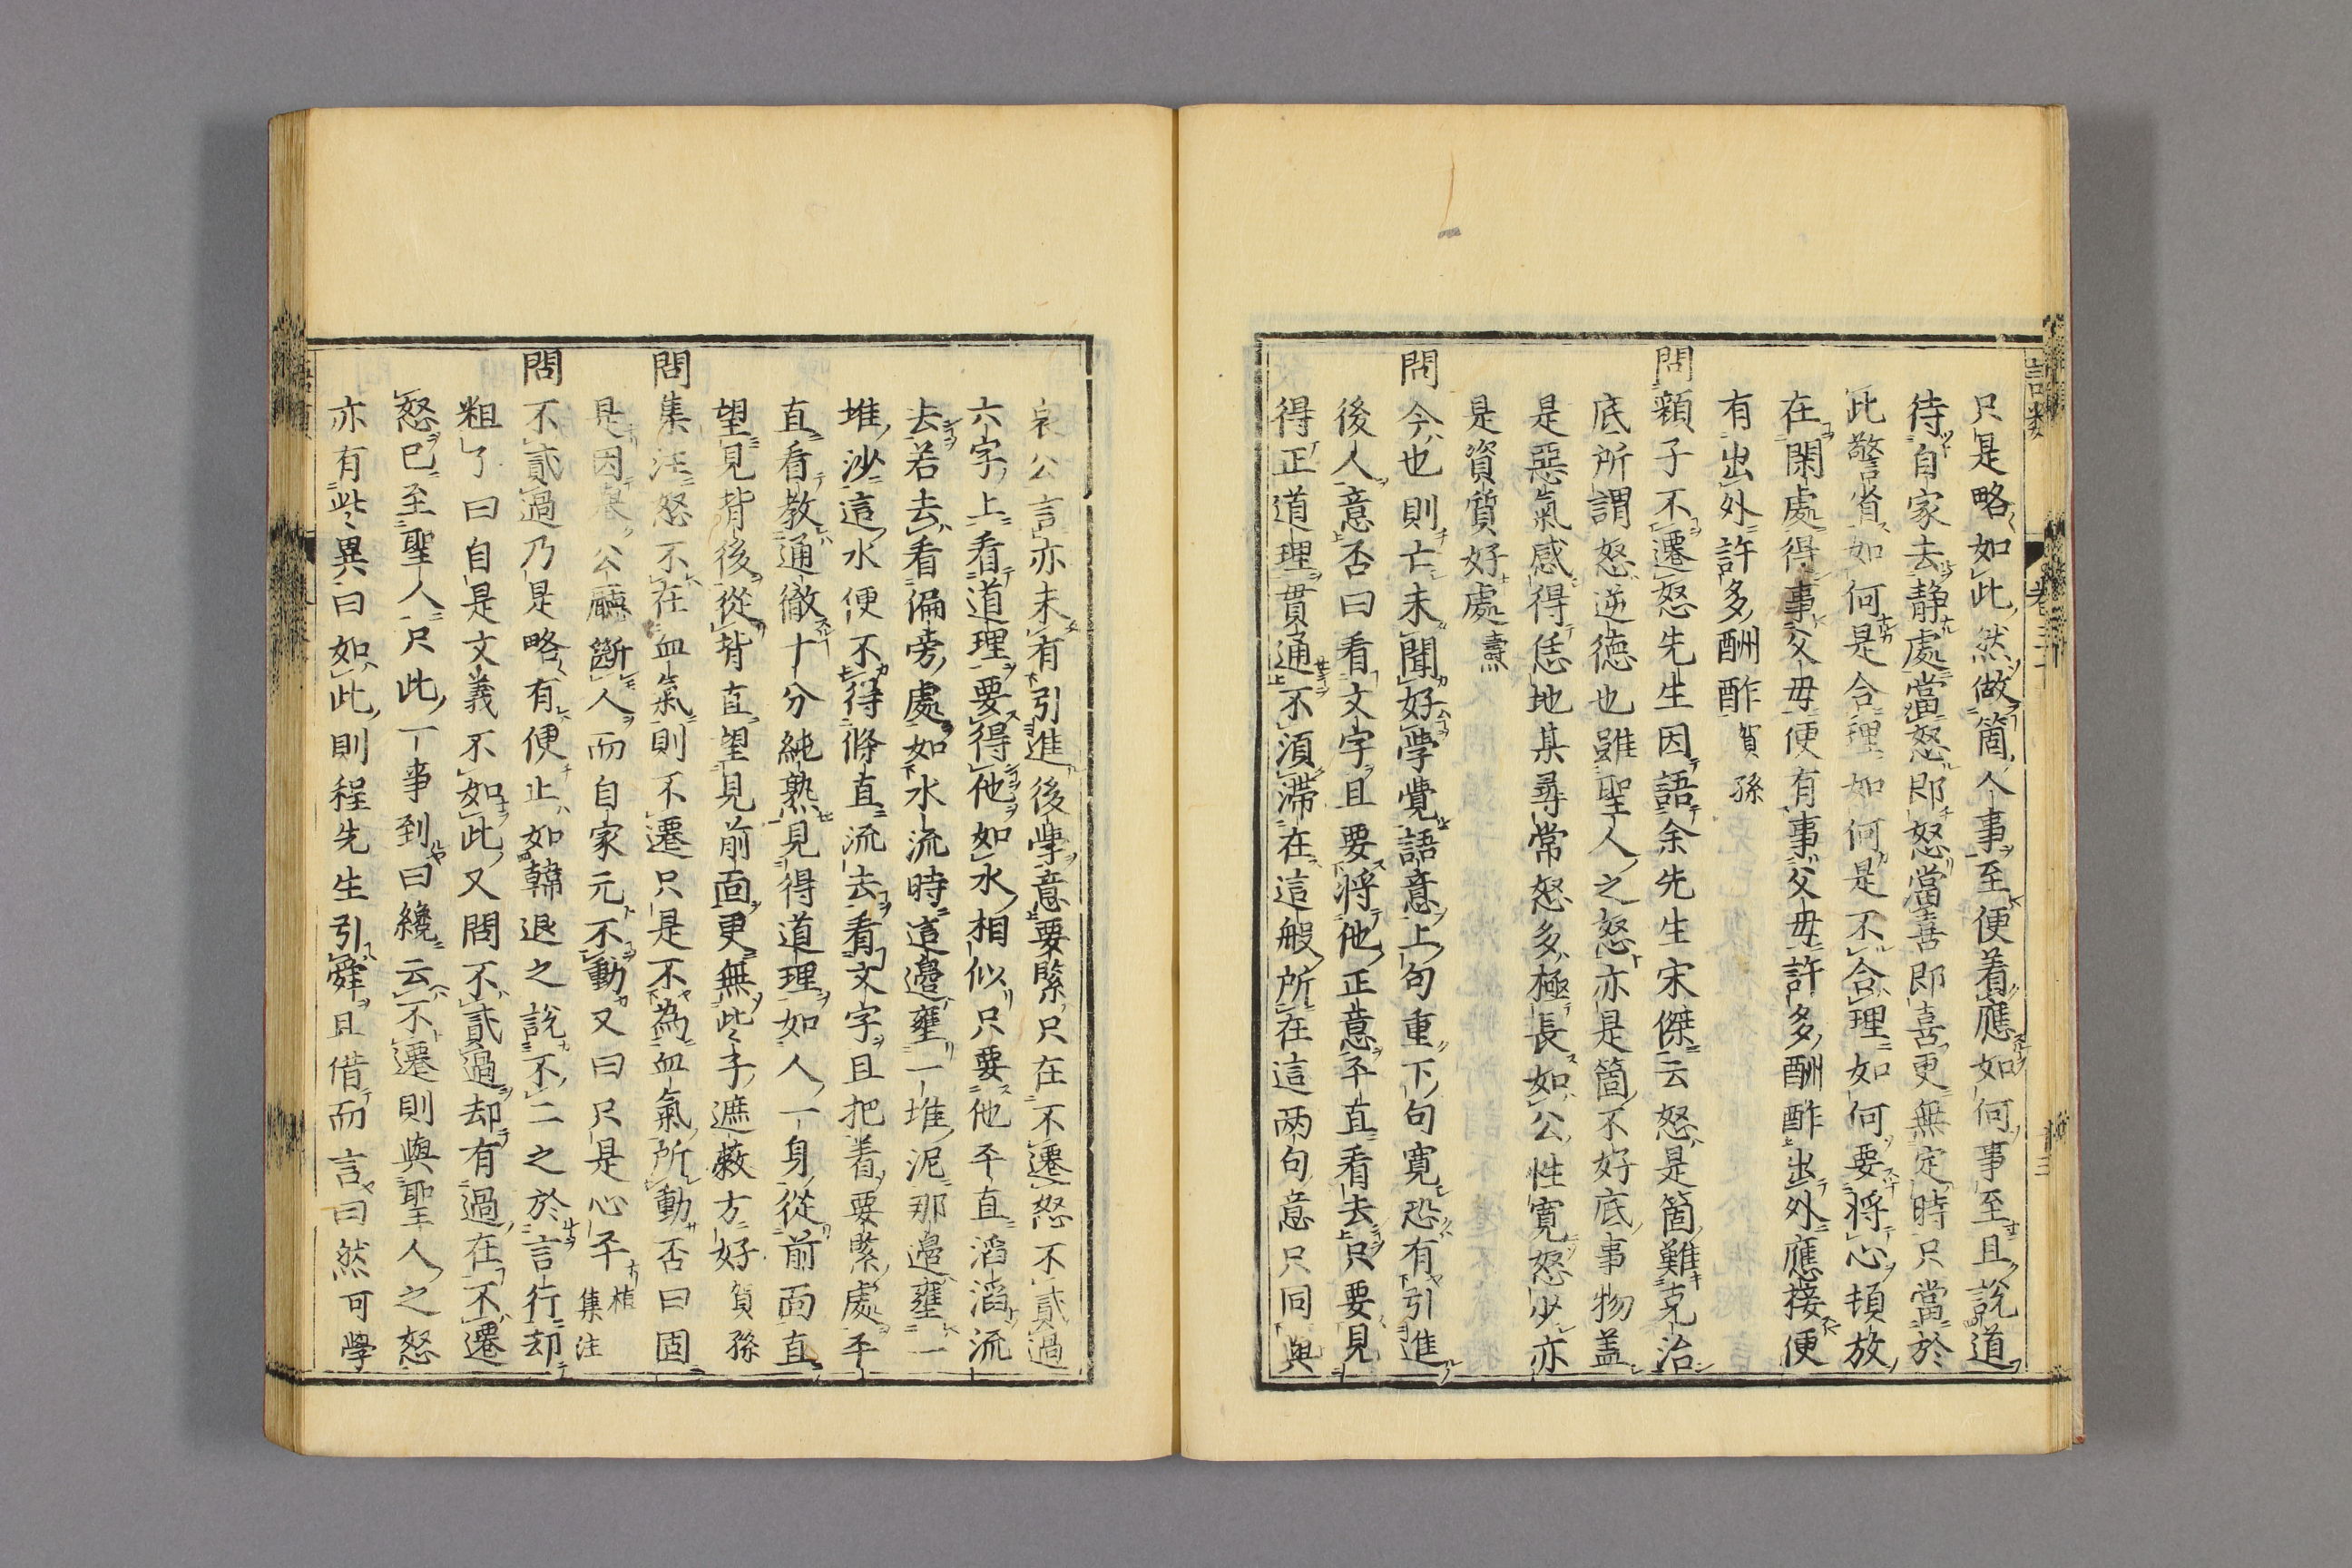 語類 卷三十
只是略如此然做箇人事至便着應如何事至且說道
待自家去静處當怒即怒當喜即喜更無定時只當於
此警省如何是合理如何是不合理如何要將心頓放
在閑處得事父母便有事父母許多酬酢出外應接便
有出外許多酬酢賀孫
問顏子不遷怒先生因語余先生宋傑云怒是箇難克治
底所謂怒逆德也雖聖人之怒亦是箇不好底事物蓋
是惡氣感得恁地某尋常怒多極長如公性寬怒少亦
是資質好處壽
問今也則亡未聞好學覺語意上句重下句寬恐有引進
後人意否曰看文字且要將他正意平直看去只要見
得正道理貫通不須滯在這般所在這兩句意只同與
哀公言亦未有引進後學意要緊只在不遷怒不貳過
六字上看道理要得他如水相似只要他平直滔滔流
去若去看偏旁處如水流時這邊壅一堆泥那邊壅一
堆沙這水便不得條直流去看文字且把着要緊處平
直看教通徹十分純熟見得道理如人一身從前面直
望見背後從背直望見前面更無些子遮蔽方好賀孫
問集注怒不在血氣則不遷只是不為血氣所動否曰固
是因舉公廳斷人而自家元不動又曰只是心平植 集注
問不貳過乃是略有便止如韓退之說不二之於言行却
粗了曰自是文義不如此又問不貳過却有過在不遷
怒已至聖人只此一事到曰纔云不遷則與聖人之怒
亦有些異曰如此則程先生引舜且借而言曰然可學